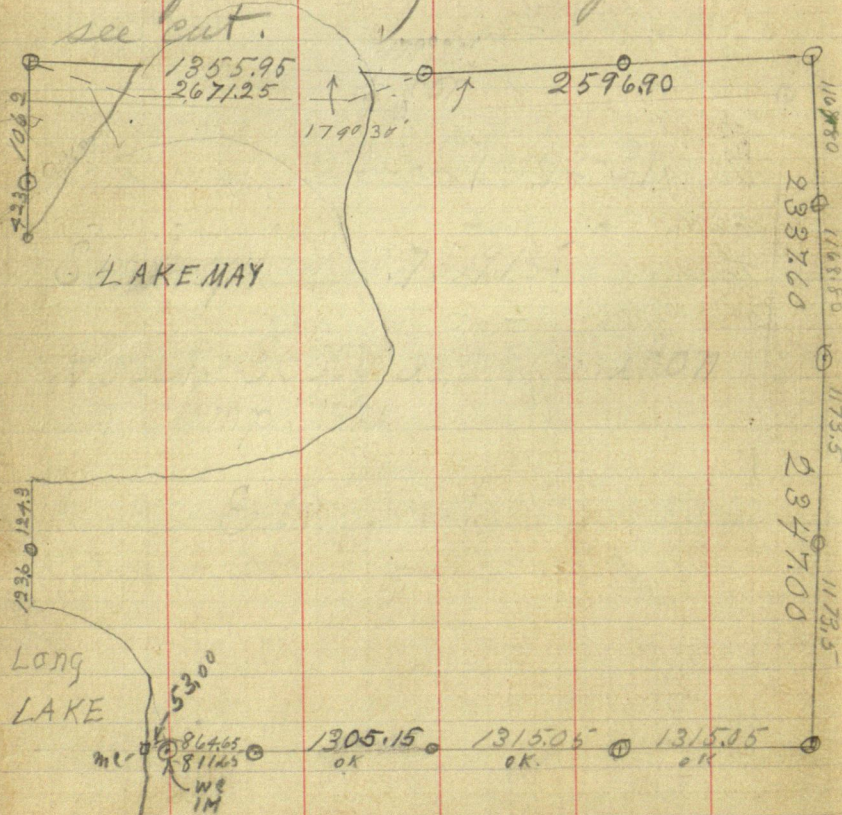 see cut.
1355.95
2671.25
179° 30'
2596.90
1062
423
1168.80
2337.60
1168.80
LAKE MAY
1173.5
2347.00
1173.5
124.3
123.6
Long
LAKE
53.00
mc
864.65
811.65
1305.15
OK
1315.05
OK.
1315.05
OK
WC
1M